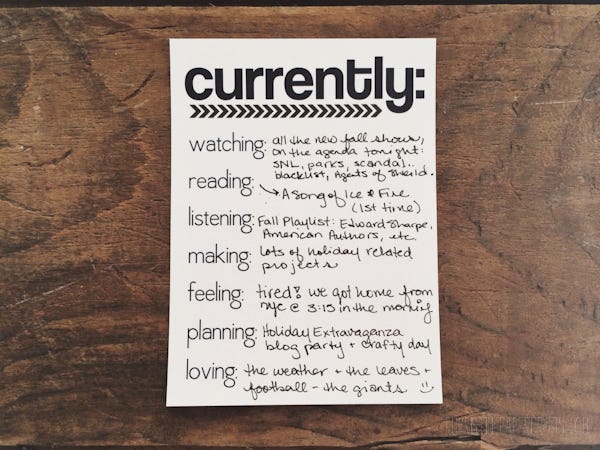 currently:
watching: all the new fall shows,
on the agenda tonight:
SNL, parks, scandal..
blacklist, Agents of Sheild.
reading: → A Song of Ice & Fire
(1st time)
listening: Fall Playlist: Edward Sharpe,
American Authors, etc.
making: lots of holiday related
projects
feeling: tired! we got home from
nyc @ 3:15 in the morning
planning: Holiday Extravaganza
blog party + crafty day
loving: the weather + the leaves +
football - the giants :)